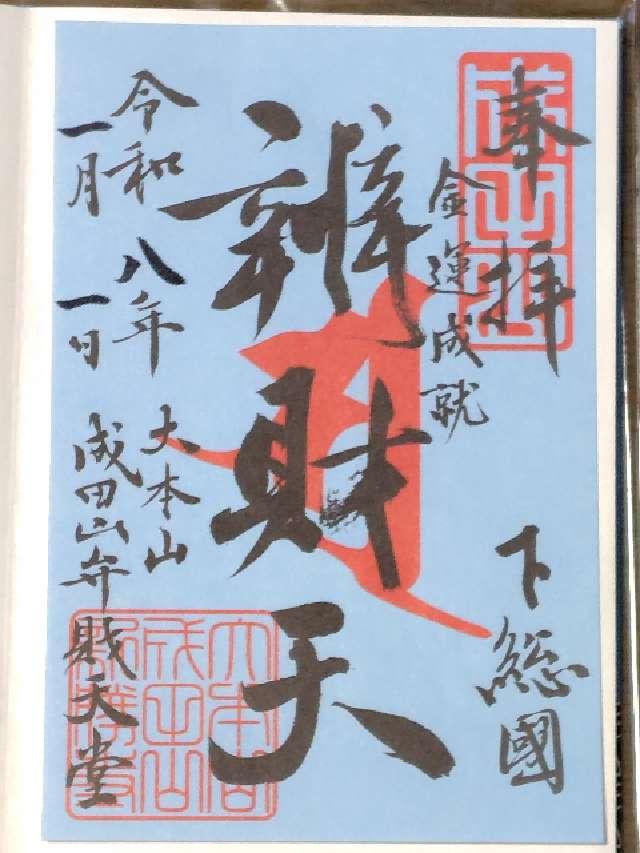 奉拝
下総國
金運成就
辨財天
令和八年
一月一日
大本山
成田山弁財天堂
成田山